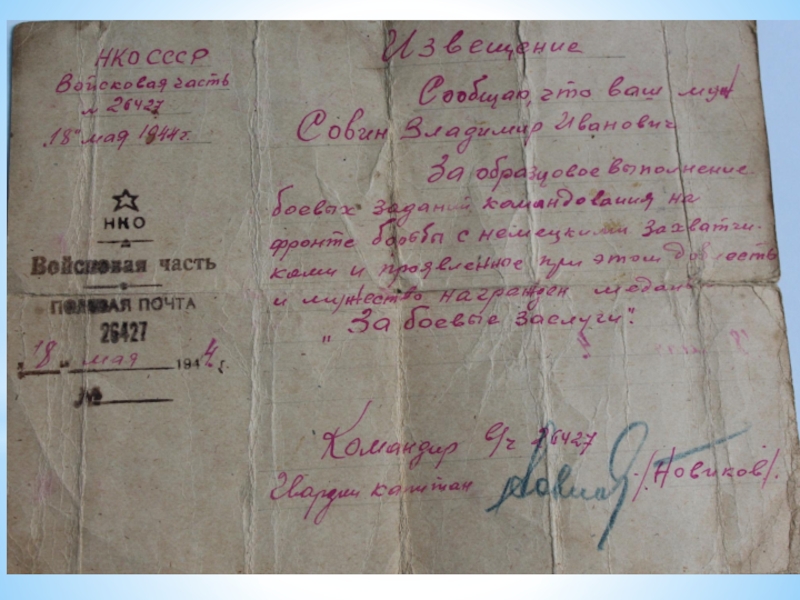 НКО СССР
Войсковая часть
№ 26427
"18" мая 1944 г.
НКО
Войсковая часть
ПОЛЕВАЯ ПОЧТА
26427
"18" мая 1944 г.
№
Извещение
Сообщаю, что ваш муж
Совин Владимир Иванович
За образцовое выполнение
боевых заданий командования на
фронте борьбы с немецкими захватчи-
ками и проявленные при этом доблесть
и мужество награжден медаль
„За боевые заслуги".
Командир в/ч 26427
Гвардии капитан /Новиков/.